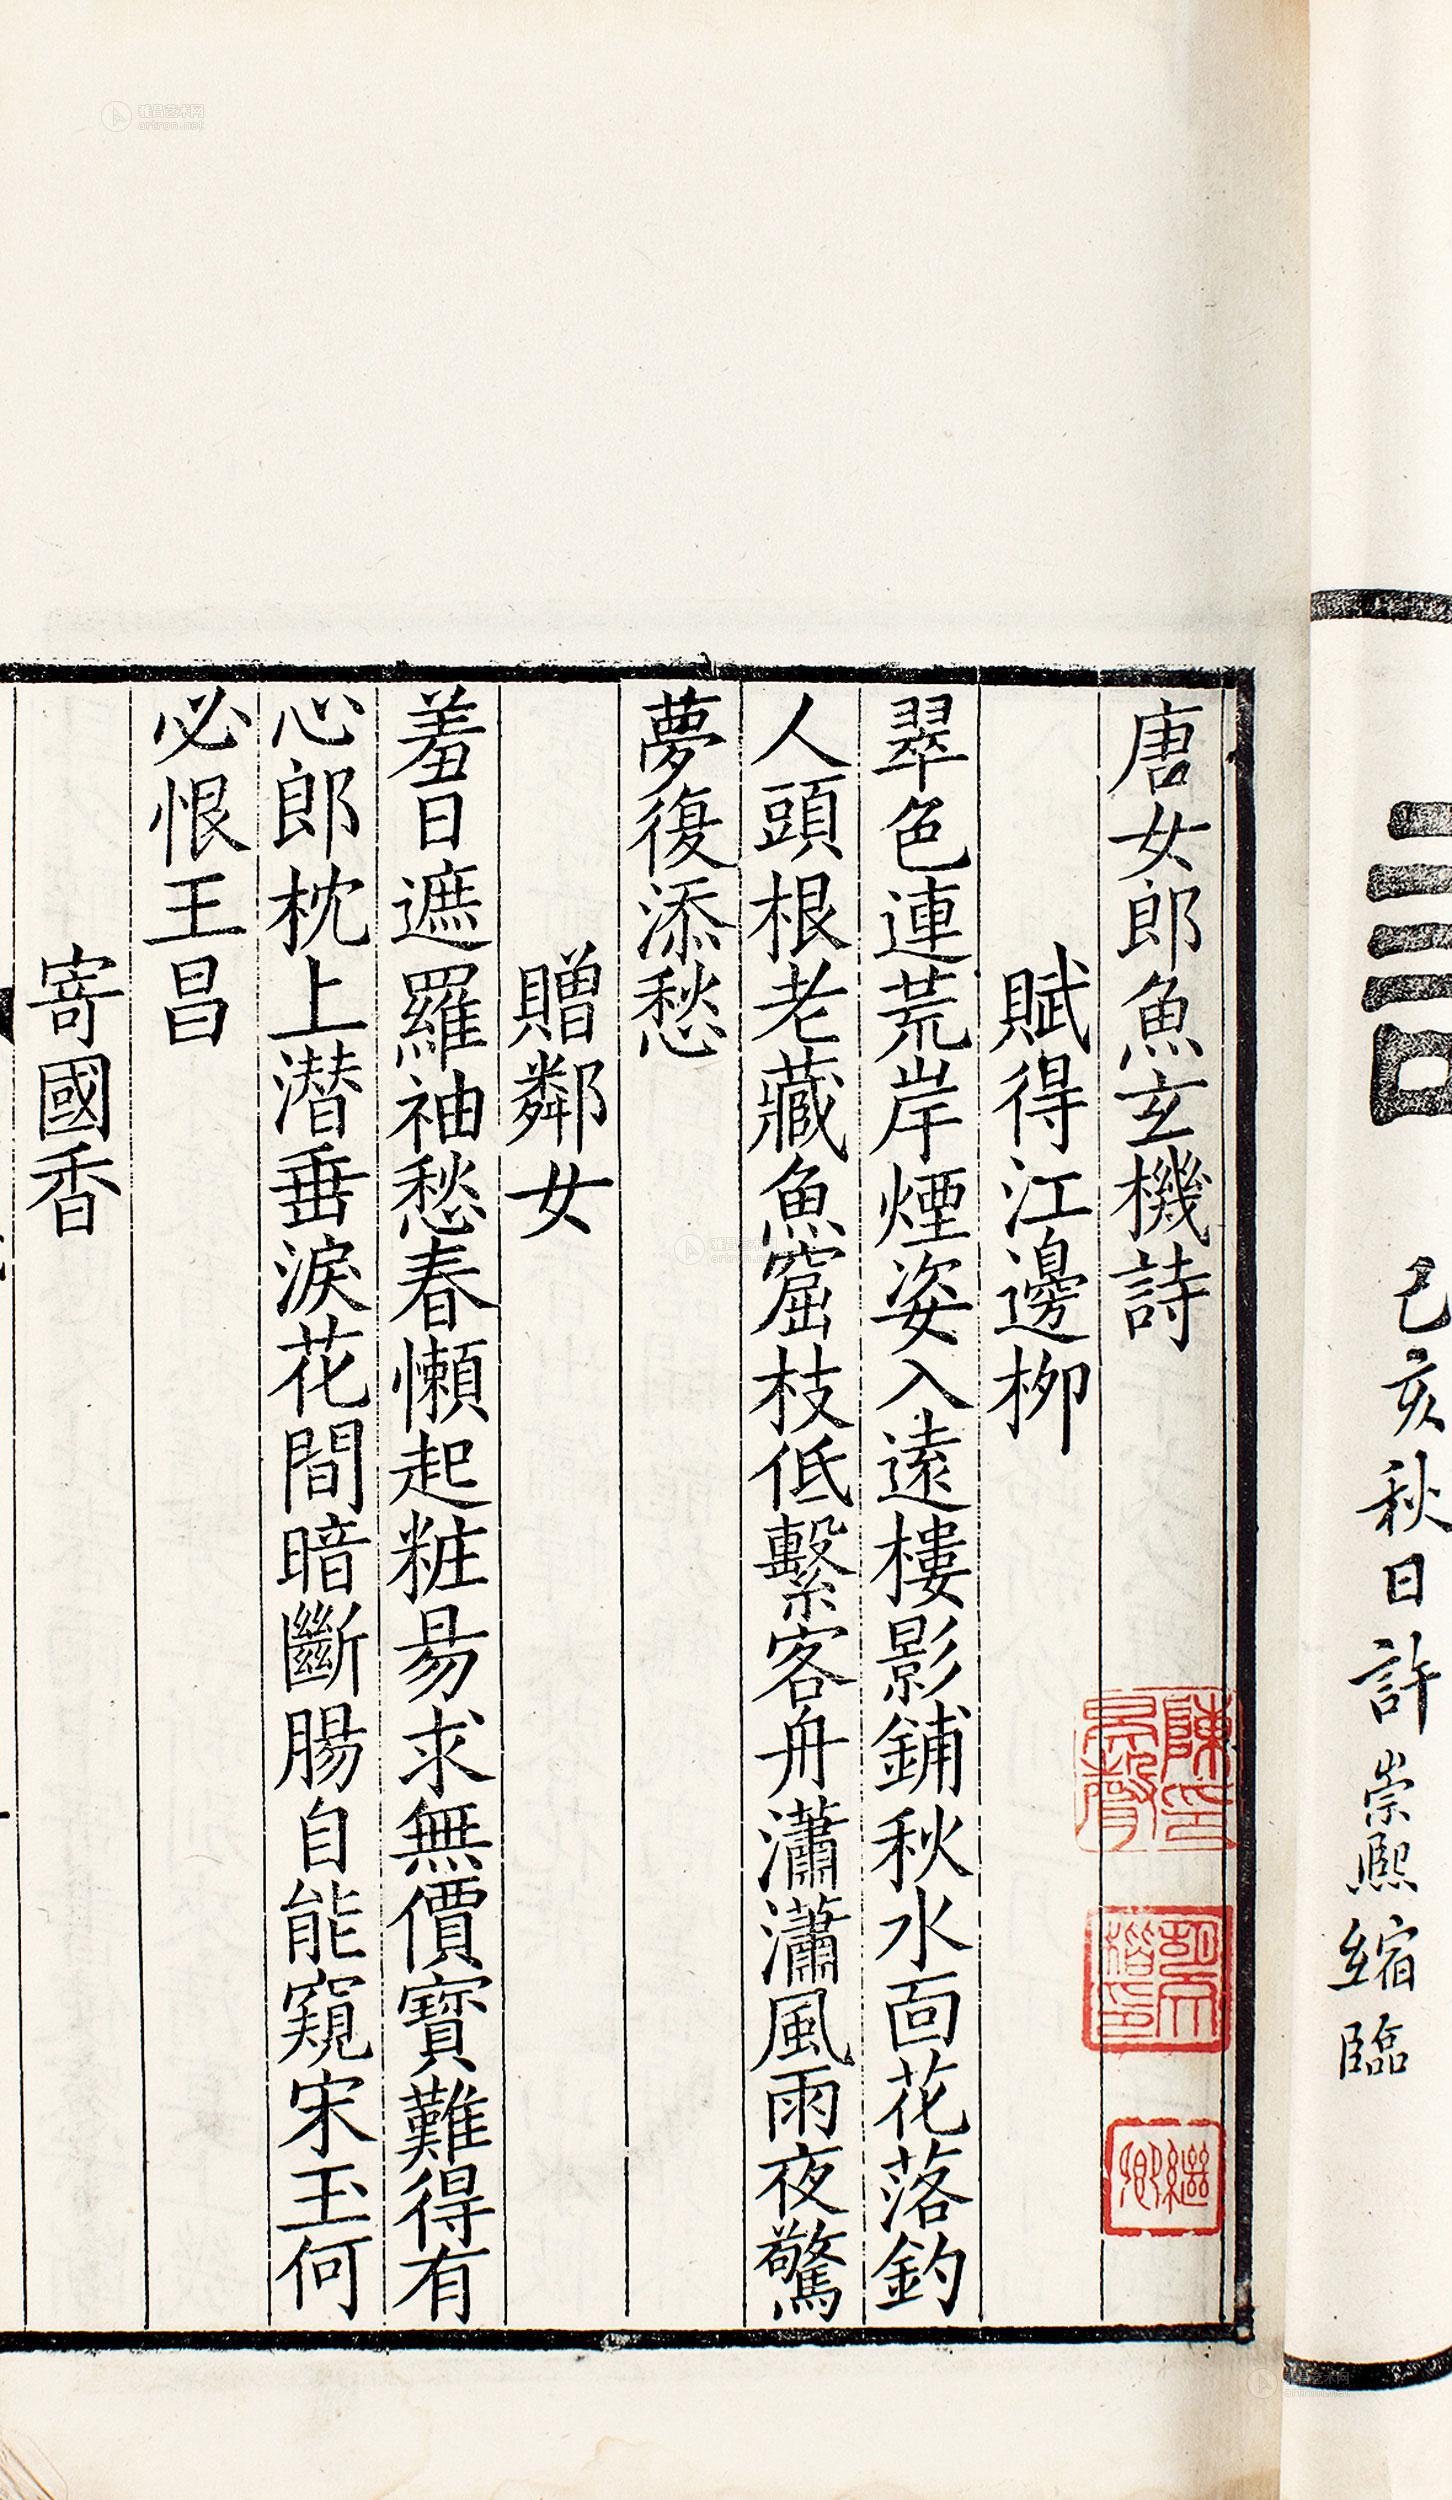 己亥秋日許崇熙縮臨
唐女郎魚玄機詩
賦得江邊柳
翠色連荒岸煙姿入遠樓影鋪秋水面花落釣
人頭根老藏魚窟枝低繫客舟瀟瀟風雨夜驚
夢復添愁
贈鄰女
羞日遮羅袖愁春懶起粧昜求無價寶難得有
心郎枕上潛垂淚花間暗斷腸自能窺宋玉何
必恨王昌
寄國香
雅昌艺术网
artron.net